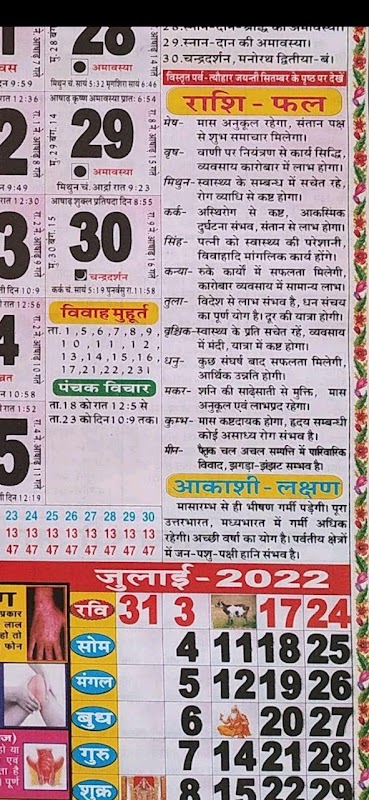 28
29.स्नान-दान की अमावस्या।
अमावस्या
30.चन्द्रदर्शन, मनोरथ द्वितीया-बं।
मिथुन चं. सायं 5:32 मृगशिरा सायं 6:46
विस्तृत पर्व-त्यौहार जयन्ती सितम्बर के पृष्ठ पर देखें
आषाढ़ कृष्ण अमावस्या प्रातः 6:54
29
अमावस्या
मिथुन चं. आर्द्रा रात 9:23
आषाढ़ शुक्ल प्रतिपदा दिन 8:55
30
चन्द्रदर्शन
कर्क चं. सायं 5:19 पुनर्वसु रा.11:58
राशि - फल
मेष- मास अनुकूल रहेगा, संतान पक्ष
से शुभ समाचार मिलेगा।
वृष- वाणी पर नियंत्रण से कार्य सिद्धि,
व्यवसाय कारोबार में लाभ होगा।
मिथुन-स्वास्थ्य के सम्बन्ध में सचेत रहे,
रोग व्याधि से कष्ट होगा।
कर्क- अस्थिरोग से कष्ट, आकस्मिक
दुर्घटना संभव, संतान से लाभ होगा।
सिंह- पत्नी को स्वास्थ्य की परेशानी,
विवाहादि मांगलिक कार्य होंगे।
कन्या- रुके कार्यो में सफलता मिलेगी,
कारोबार व्यवसाय में सामान्य लाभ।
तुला- विदेश से लाभ संभव है, धन संचय
का पूर्ण योग है। दूर की यात्रा होगी।
वृश्चिक-स्वास्थ्य के प्रति सचेत रहें, व्यवसाय
में मंदी, यात्रा में कष्ट होगा।
धनु- कुछ संघर्ष बाद सफलता मिलेगी,
आर्थिक उन्नति होगी।
मकर- शनि की साढ़ेसाती से मुक्ति, मास
अनुकूल एवं लाभप्रद रहेगा।
कुम्भ- मास कष्टदायक होगा, हृदय सम्बन्धी
कोई असाध्य रोग संभव है।
मीन- पैतृक चल अचल सम्पत्ति में पारिवारिक
विवाद, झगड़ा-झंझट सम्भव है।
विवाह मुहूर्त
ता. 1, 5, 6, 7, 8, 9,
10, 11, 12,
13, 14, 15, 16,
17, 21, 22, 23।
पंचक विचार
ता.18 को रात 12:5 से
ता.23 को दिन 10:9 तक।
23 24 25 26 27 28 29 30
13 13 13 13 13 13 13 13
47 47 47 47 47 47 47 47
आकाशी-लक्षण
मासारम्भ से ही भीषण गर्मी पड़ेगी। पूरा
उत्तरभारत, मध्यभारत में गर्मी अधिक
रहेगी। अच्छी वर्षा का योग है। पर्वतीय क्षेत्रों
में जन-पशु-पक्षी हानि संभव है।
जुलाई - 2022
रवि 31 3 17 24
सोम 4 11 18 25
मंगल 5 12 19 26
बुध 6 20 27
गुरु 7 14 21 28
शुक्र 8 15 22 29